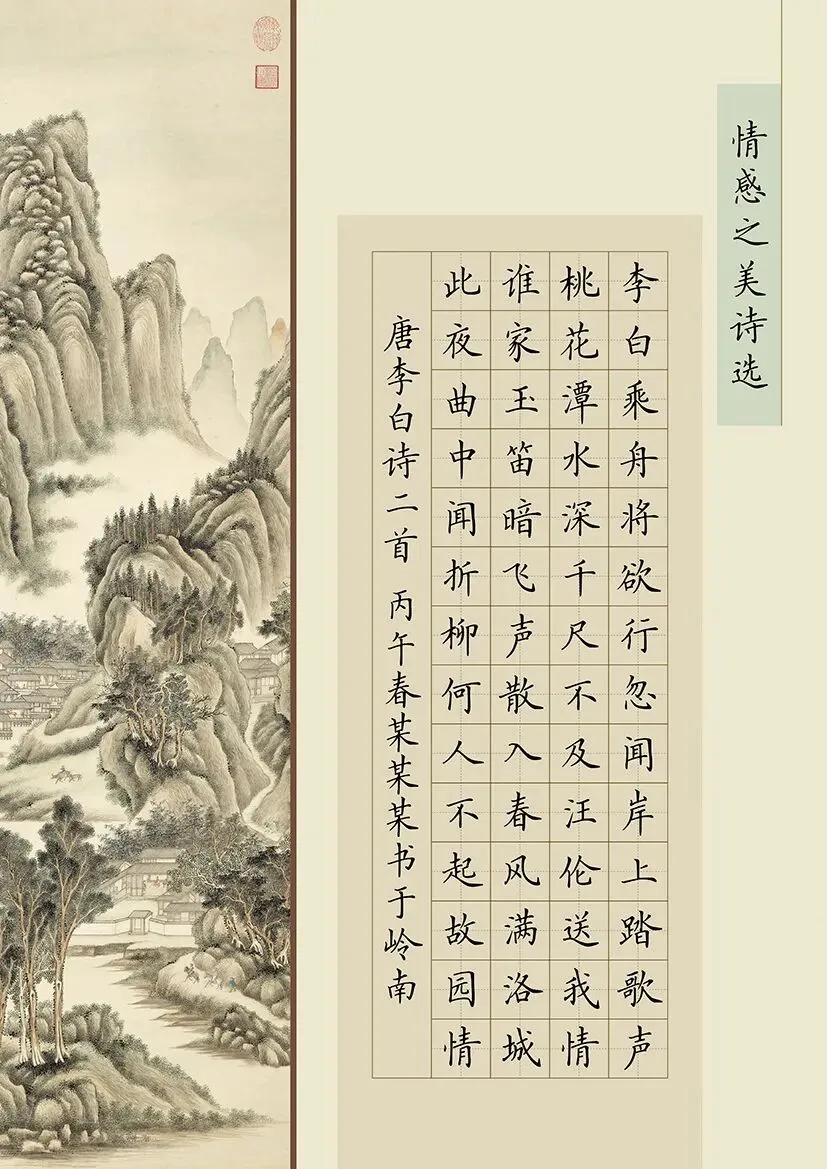 情感之美诗选
李白乘舟将欲行忽闻岸上踏歌声
桃花潭水深千尺不及汪伦送我情
谁家玉笛暗飞声散入春风满洛城
此夜曲中闻折柳何人不起故园情
唐李白诗二首 丙午春某某某书于岭南